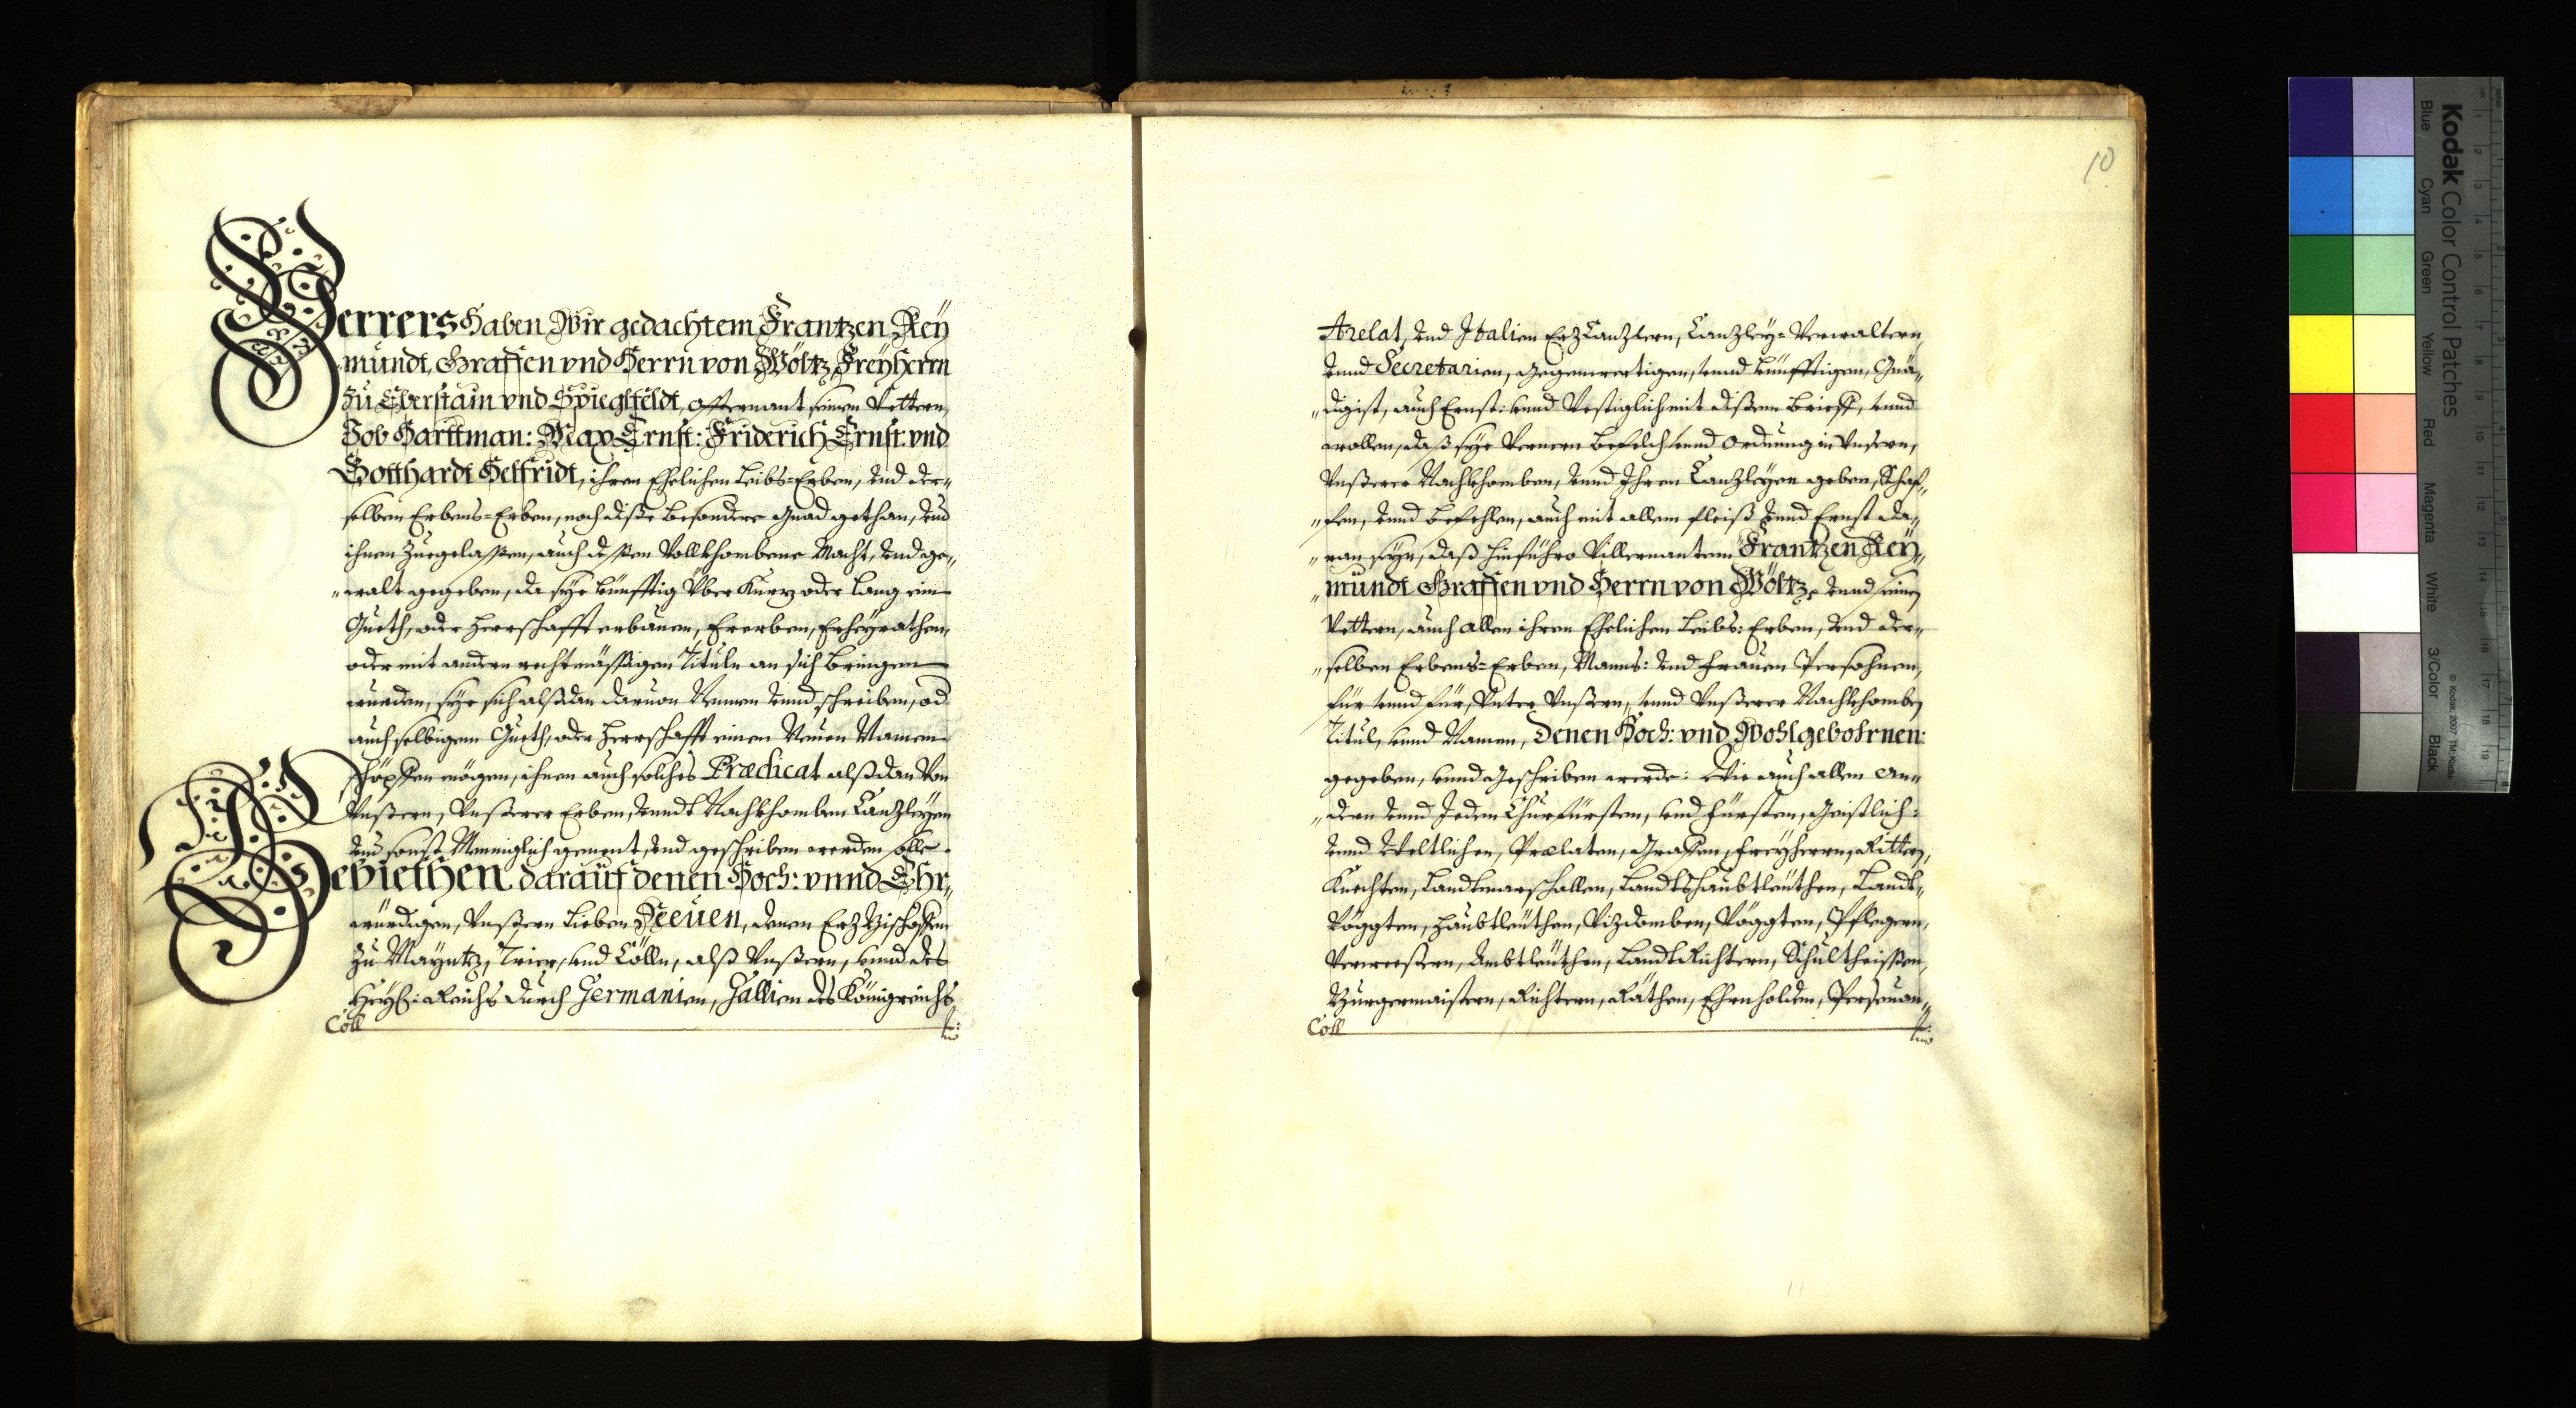 Ferrers Haben Wir gedachtem Frantzen Rey
mundt, Graffen vnd Herrn von Wöltz, Freyherrn
zu Eberstain vnd Spieglfeldt, offternant seinen Vettern,
Job Harttman: Max Ernst: Friderich Ernst: vnd
Gotthardt Helfridt, ihren Ehelichen Leibs=Erben, vnd der=
selben Erbens=Erben, noch diße besondere Gnad gethan, vnd
ihnen Zuegelaßen, auch deßen Vollkhombene Macht, vnd ge=
walt gegeben, da sye künfftig Vber Kurtz oder lang ein
Gueth, oder Herrschafft erbauen, Ererben, Erheyrathen,
oder mit andern rechtmässigen Tituln an sich bringen
wurden, sye sich alßdan daruon Nennen vnnd schreiben, od
auch selbigem Gueth, oder Herrschafft einen Neuen Namen
schöpffen mögen, ihnen auch solches Prædicat alßdan Von
Vnßern, Vnßerer Erben, vnndt Nachkhomben Canzleyen
vnd sonst Menniglich genent, vnd geschriben werden solle.
Gebiethen darauf denen Hoch: vnnd Ehr=
würdigen, Vnßern Lieben Neuen, denen ErzBischoffen
zu Mayntz, Trier, vnd Cölln, alß Vnßern, vnnd des
Heyl: Reichs durch Germanien, Gallien des Königreichs
Coll
10
Arelat, vnd Italien ErzCanzlern, Canzley=Verwaltern,
vnnd Secretarien, gegenwertigen, vnnd künfftigen, Gnä=
digist, auch Ernst: vnnd Vestiglich mit dißem Brieff, vnnd
wollen, daß sye Fernern befelch vnnd Ordnung in Vnßern,
Vnßerer Nachkhomben, vnnd Ihren Canzleyen geben, Schaf=
fen, vnnd befehlen, auch mit allem fleiß vnnd Ernst da=
ran seyn, daß hinführo Villernantem Frantzen Rey=
mundt Graffen vnd Herrn von Wöltz, vnnd seinen
Vettern, auch allen ihren Ehelichen Leibs: Erben, vnd der=
selben Erbens=Erben, Manns: vnd Frauen Persohnen,
für vnnd für, Vnter Vnßern, vnnd Vnßerer Nachkhomben
Titul, vnnd Namen, Denen Hoch: vnd Wohlgebohrnen:
gegeben, vnnd geschriben werde: Wie auch allen An=
dern vnnd Jeden Churfürsten, vnd Fürsten, Geistlich:
vnnd Weltlichen, Prælaten, Graffen, Freyherrn, Rittern,
Knechten, Landtmarschallen, Landtshaubtleuthen, Landt=
Vöggten, Haubtleuthen, Vizdomben, Vöggten, Pflegern,
Verweeßern, Ambtleuthen, LandtRichtern, Schultheissen,
Burgermaistern, Richtern, Räthen, Ehrnholden, Perseuan=
Coll